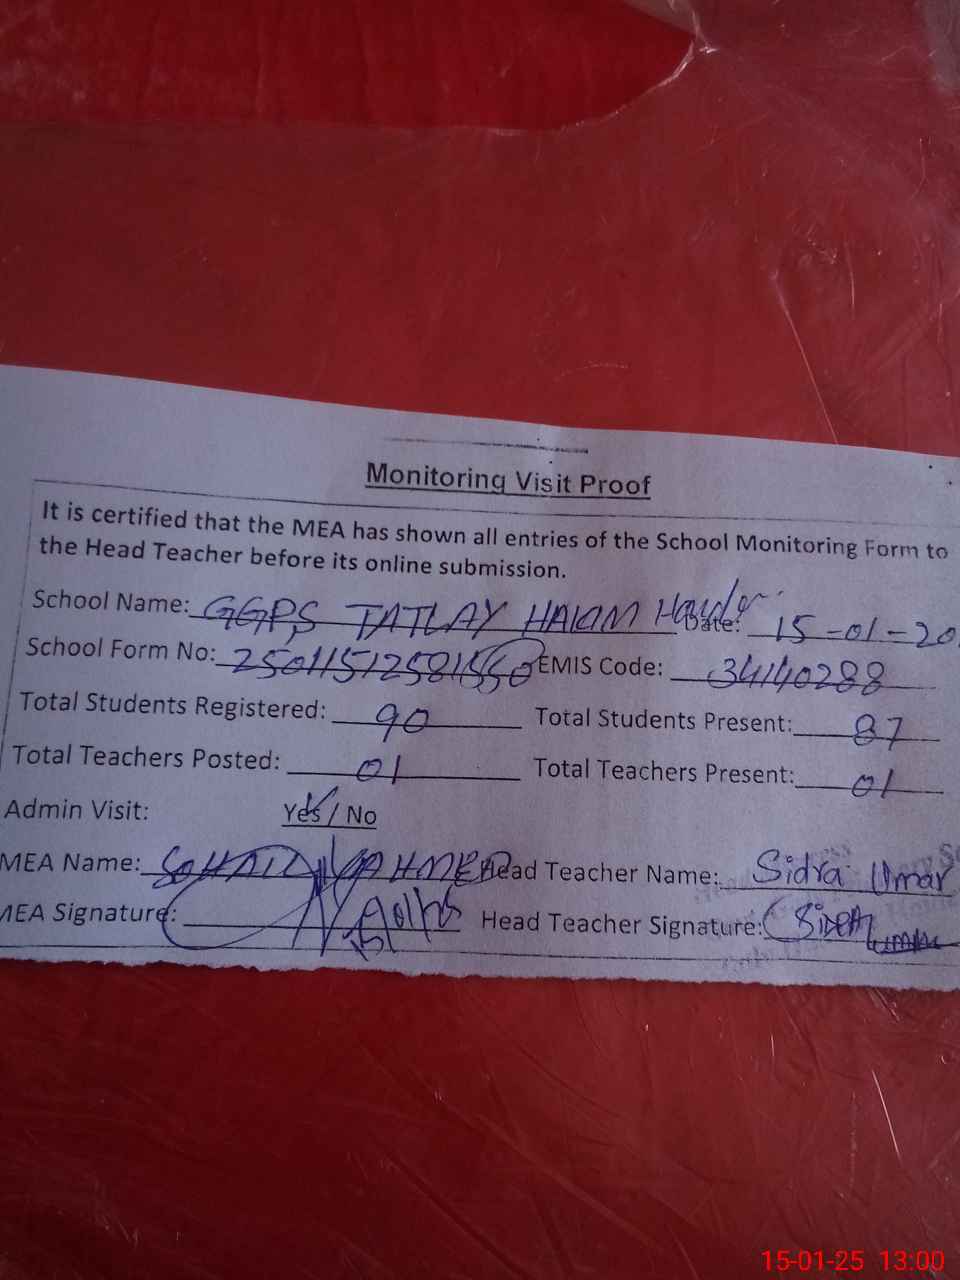 Monitoring Visit Proof
It is certified that the MEA has shown all entries of the School Monitoring Form to
the Head Teacher before its online submission.
School Name: GGPS TATLAY HAKIM Hayder Date: 15-01-20
School Form No: EMIS Code: 34140288
Total Students Registered: 90 Total Students Present: 87
Total Teachers Posted: 01 Total Teachers Present: 01
Admin Visit: Yes / No
MEA Name: SOHAIL AHMED Head Teacher Name: Sidra Umar
MEA Signature: Head Teacher Signature: Sidra
15-01-25 13:00